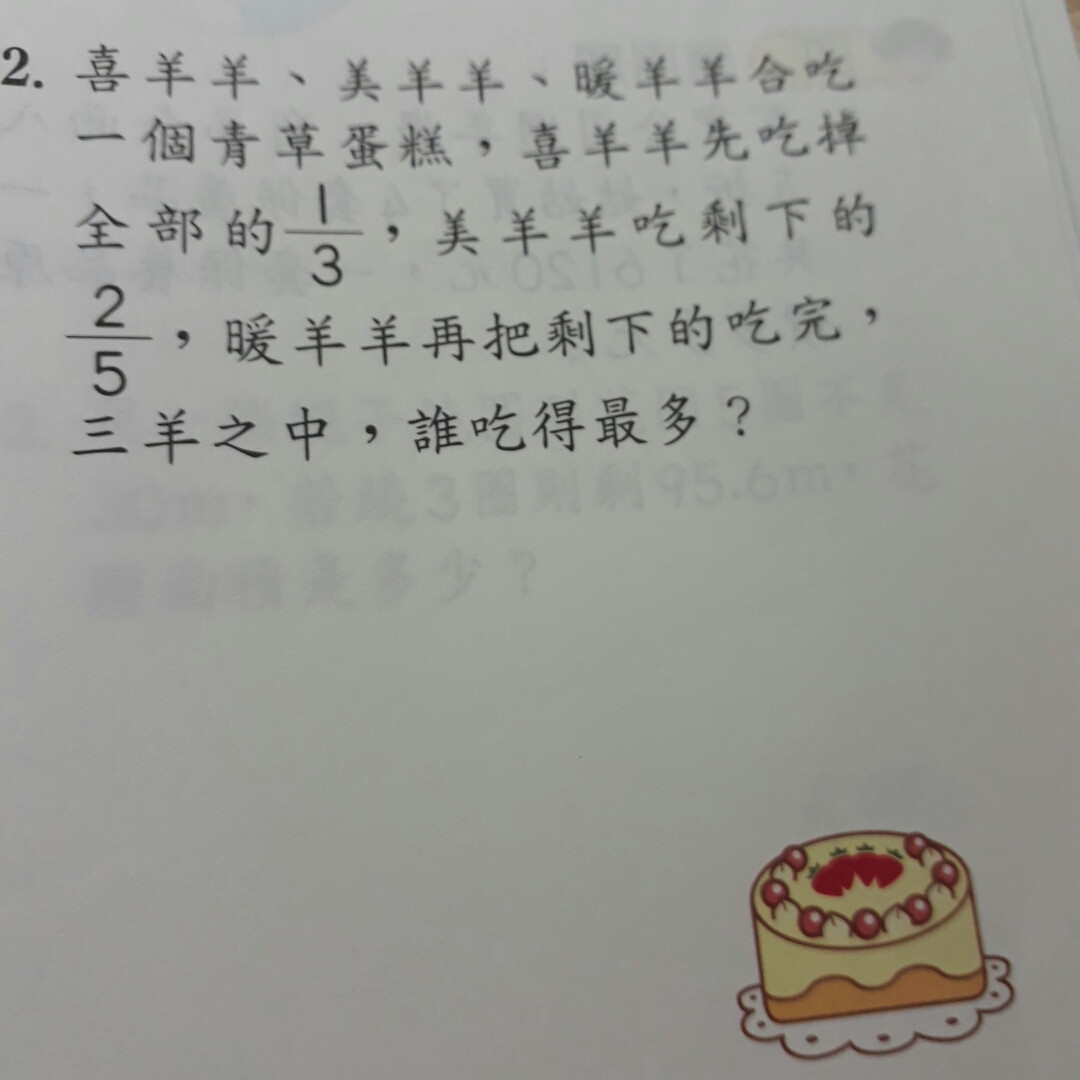 2. 喜羊羊、美羊羊、暖羊羊合吃
一個青草蛋糕，喜羊羊先吃掉
全部的1/3，美羊羊吃剩下的
2/5，暖羊羊再把剩下的吃完，
三羊之中，誰吃得最多？